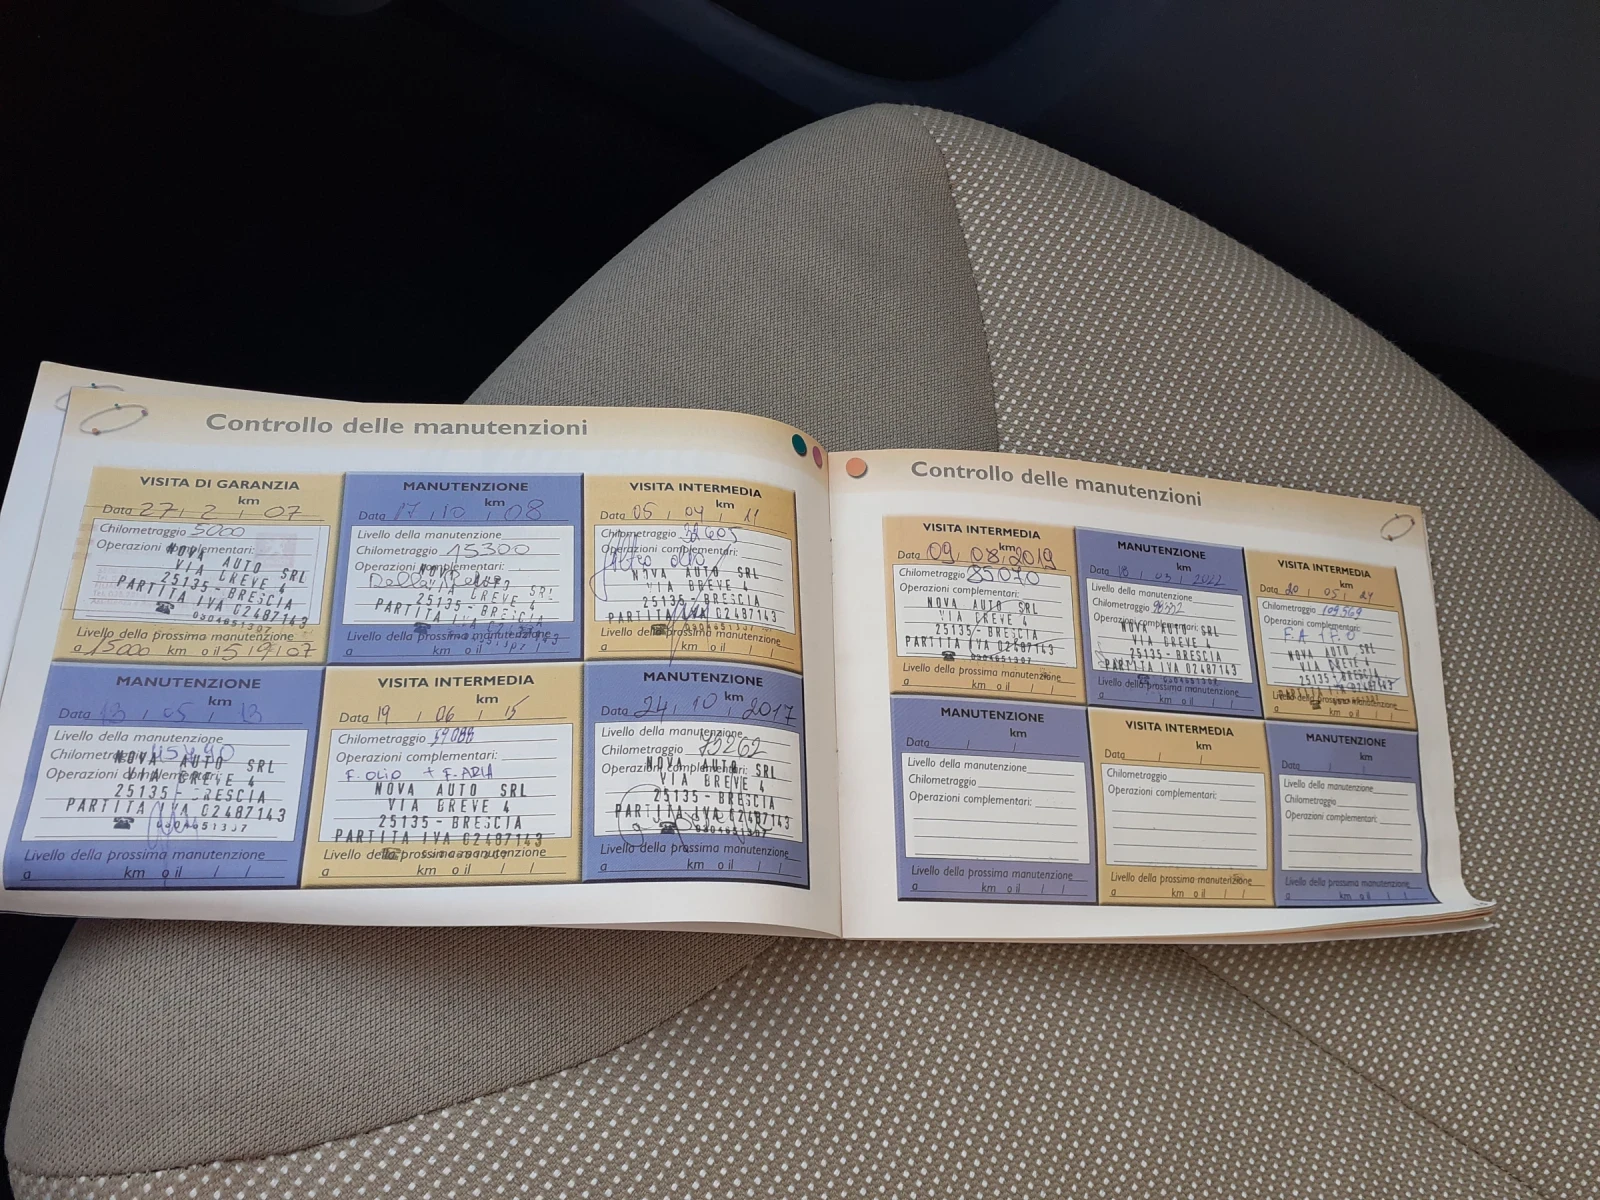 Controllo delle manutenzioni
VISITA DI GARANZIA
km
Data 27 / 2 / 07
Chilometraggio 5000
Operazioni complementari:
NOVA AUTO SRL
VIA BREVE 4
25135 - BRESCIA
PARTITA IVA 02487143
Livello della prossima manutenzione
a 15000 km o il 5 / 9 / 07
MANUTENZIONE
km
Data 17 / 10 / 08
Livello della manutenzione
Chilometraggio 15300
Operazioni complementari:
25135 - BRESCIA
PARTITA
Livello della prossima manutenzione
a km o il / /
VISITA INTERMEDIA
km
Data 05 / 04 / 11
Chilometraggio 32605
Operazioni complementari:
filtro olio
NOVA AUTO SRL
VIA BREVE 4
25135 - BRESCIA
PARTITA IVA 02487143
Livello della prossima manutenzione
a km o il / /
MANUTENZIONE
km
Data 13 / 05 / 13
Livello della manutenzione
Chilometraggio
Operazioni complementari:
NOVA AUTO SRL
VIA BREVE 4
25135 - BRESCIA
PARTITA IVA 02487143
Livello della prossima manutenzione
a km o il / /
VISITA INTERMEDIA
km
Data 19 / 06 / 15
Chilometraggio
Operazioni complementari:
F. OLIO + F. ARIA
NOVA AUTO SRL
VIA BREVE 4
25135 - BRESCIA
PARTITA IVA 02487143
Livello della prossima manutenzione
a km o il / /
MANUTENZIONE
km
Data 24 / 10 / 2017
Livello della manutenzione
Chilometraggio 73262
Operazioni complementari:
NOVA AUTO SRL
VIA BREVE 4
25135 - BRESCIA
PARTITA IVA 02487143
Livello della prossima manutenzione
a km o il / /
Controllo delle manutenzioni
VISITA INTERMEDIA
km
Data 09 / 08 / 2019
Chilometraggio 85070
Operazioni complementari:
NOVA AUTO SRL
VIA BREVE 4
25135 - BRESCIA
PARTITA IVA 02487143
Livello della prossima manutenzione
a km o il / /
MANUTENZIONE
km
Data 18 / 03 / 2022
Livello della manutenzione
Chilometraggio
Operazioni complementari:
NOVA AUTO SRL
VIA BREVE 4
25135 - BRESCIA
PARTITA IVA 02487143
Livello della prossima manutenzione
a km o il / /
VISITA INTERMEDIA
km
Data 20 / 05 / 24
Chilometraggio 109569
Operazioni complementari:
F.A + F.O
NOVA AUTO SRL
VIA BREVE 4
25135 - BRESCIA
PARTITA IVA 02487143
Livello della prossima manutenzione
a km o il / /
MANUTENZIONE
km
Data / /
Livello della manutenzione
Chilometraggio
Operazioni complementari:
Livello della prossima manutenzione
a km o il / /
VISITA INTERMEDIA
km
Data / /
Chilometraggio
Operazioni complementari:
Livello della prossima manutenzione
a km o il / /
MANUTENZIONE
km
Data / /
Livello della manutenzione
Chilometraggio
Operazioni complementari:
Livello della prossima manutenzione
a km o il / /